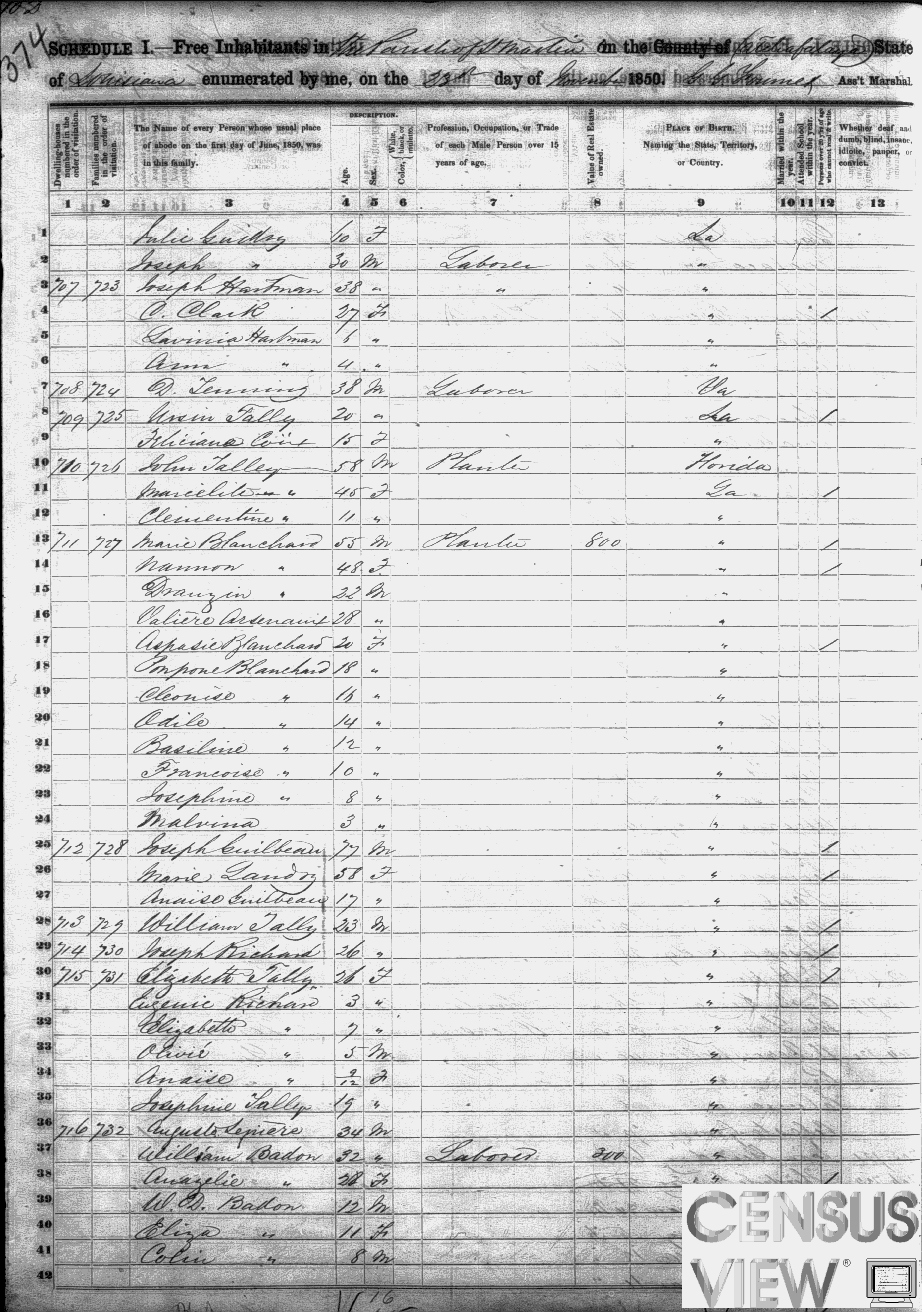 374
SCHEDULE I.—Free Inhabitants in the Parish of St Martin in the County of State
of Louisiana enumerated by me, on the 23d day of 1850. Ass't Marshal.
Dwelling-houses numbered in the order of visitation.
Families numbered in the order of visitation.
The Name of every Person whose usual place of abode on the first day of June, 1850, was in this family.
DESCRIPTION.
Age.
Sex.
Color, White, black, or mulatto.
Profession, Occupation, or Trade of each Male Person over 15 years of age.
Value of Real Estate owned.
PLACE OF BIRTH. Naming the State, Territory, or Country.
Married within the year.
Attended School within the year.
Persons over 20 y'rs of age who cannot read & write.
Whether deaf and dumb, blind, insane, idiotic, pauper, or convict.
1 2 3 4 5 6 7 8 9 10 11 12 13
1 Julie Guidry 60 F La
2 Joseph " 30 M Laborer "
3 707 723 Joseph Hartman 38 " " "
4 C. Clark 27 F " /
5 Lavinia Hartman 6 " "
6 Ann " 4 " "
7 708 724 D. 38 M Laborer Va
8 709 725 Ursin Tally 20 " La /
9 Feliciana 15 F "
10 710 726 John Talley 58 M Planter Florida
11 Marcelite " 45 F La /
12 Clementine " 11 " "
13 711 727 Marie Blanchard 55 M Planter 800 " /
14 Nannon " 48 F " /
15 Drauzin " 22 M "
16 Valière Arsenaux 28 " "
17 Aspasie Blanchard 20 F " /
18 Ponpone Blanchard 18 " "
19 Cleonise " 16 " "
20 Odile " 14 " "
21 Basiline " 12 " "
22 Francoise " 10 " "
23 Josephine " 8 " "
24 Malvina 3 " "
25 712 728 Joseph Guilbeau 77 M " /
26 Marie Landry 58 F " /
27 Anaïse Guilbeau 17 " "
28 713 729 William Tally 23 M " /
29 714 730 Joseph Richard 26 " " /
30 715 731 Elizabeth Tally 26 F " /
31 Eugenie Richard 3 " "
32 Elizabeth " 7 " "
33 Olivié " 5 M "
34 Anaïse " 9/12 F "
35 Josephine Tally 19 " "
36 716 732 Auguste 34 M "
37 William Badon 32 " Laborer 300 "
38 Anazelie " 28 F " /
39 W. D. Badon 12 M
40 Eliza " 11 F
41 Colin " 8 M
42
16
CENSUS
VIEW®